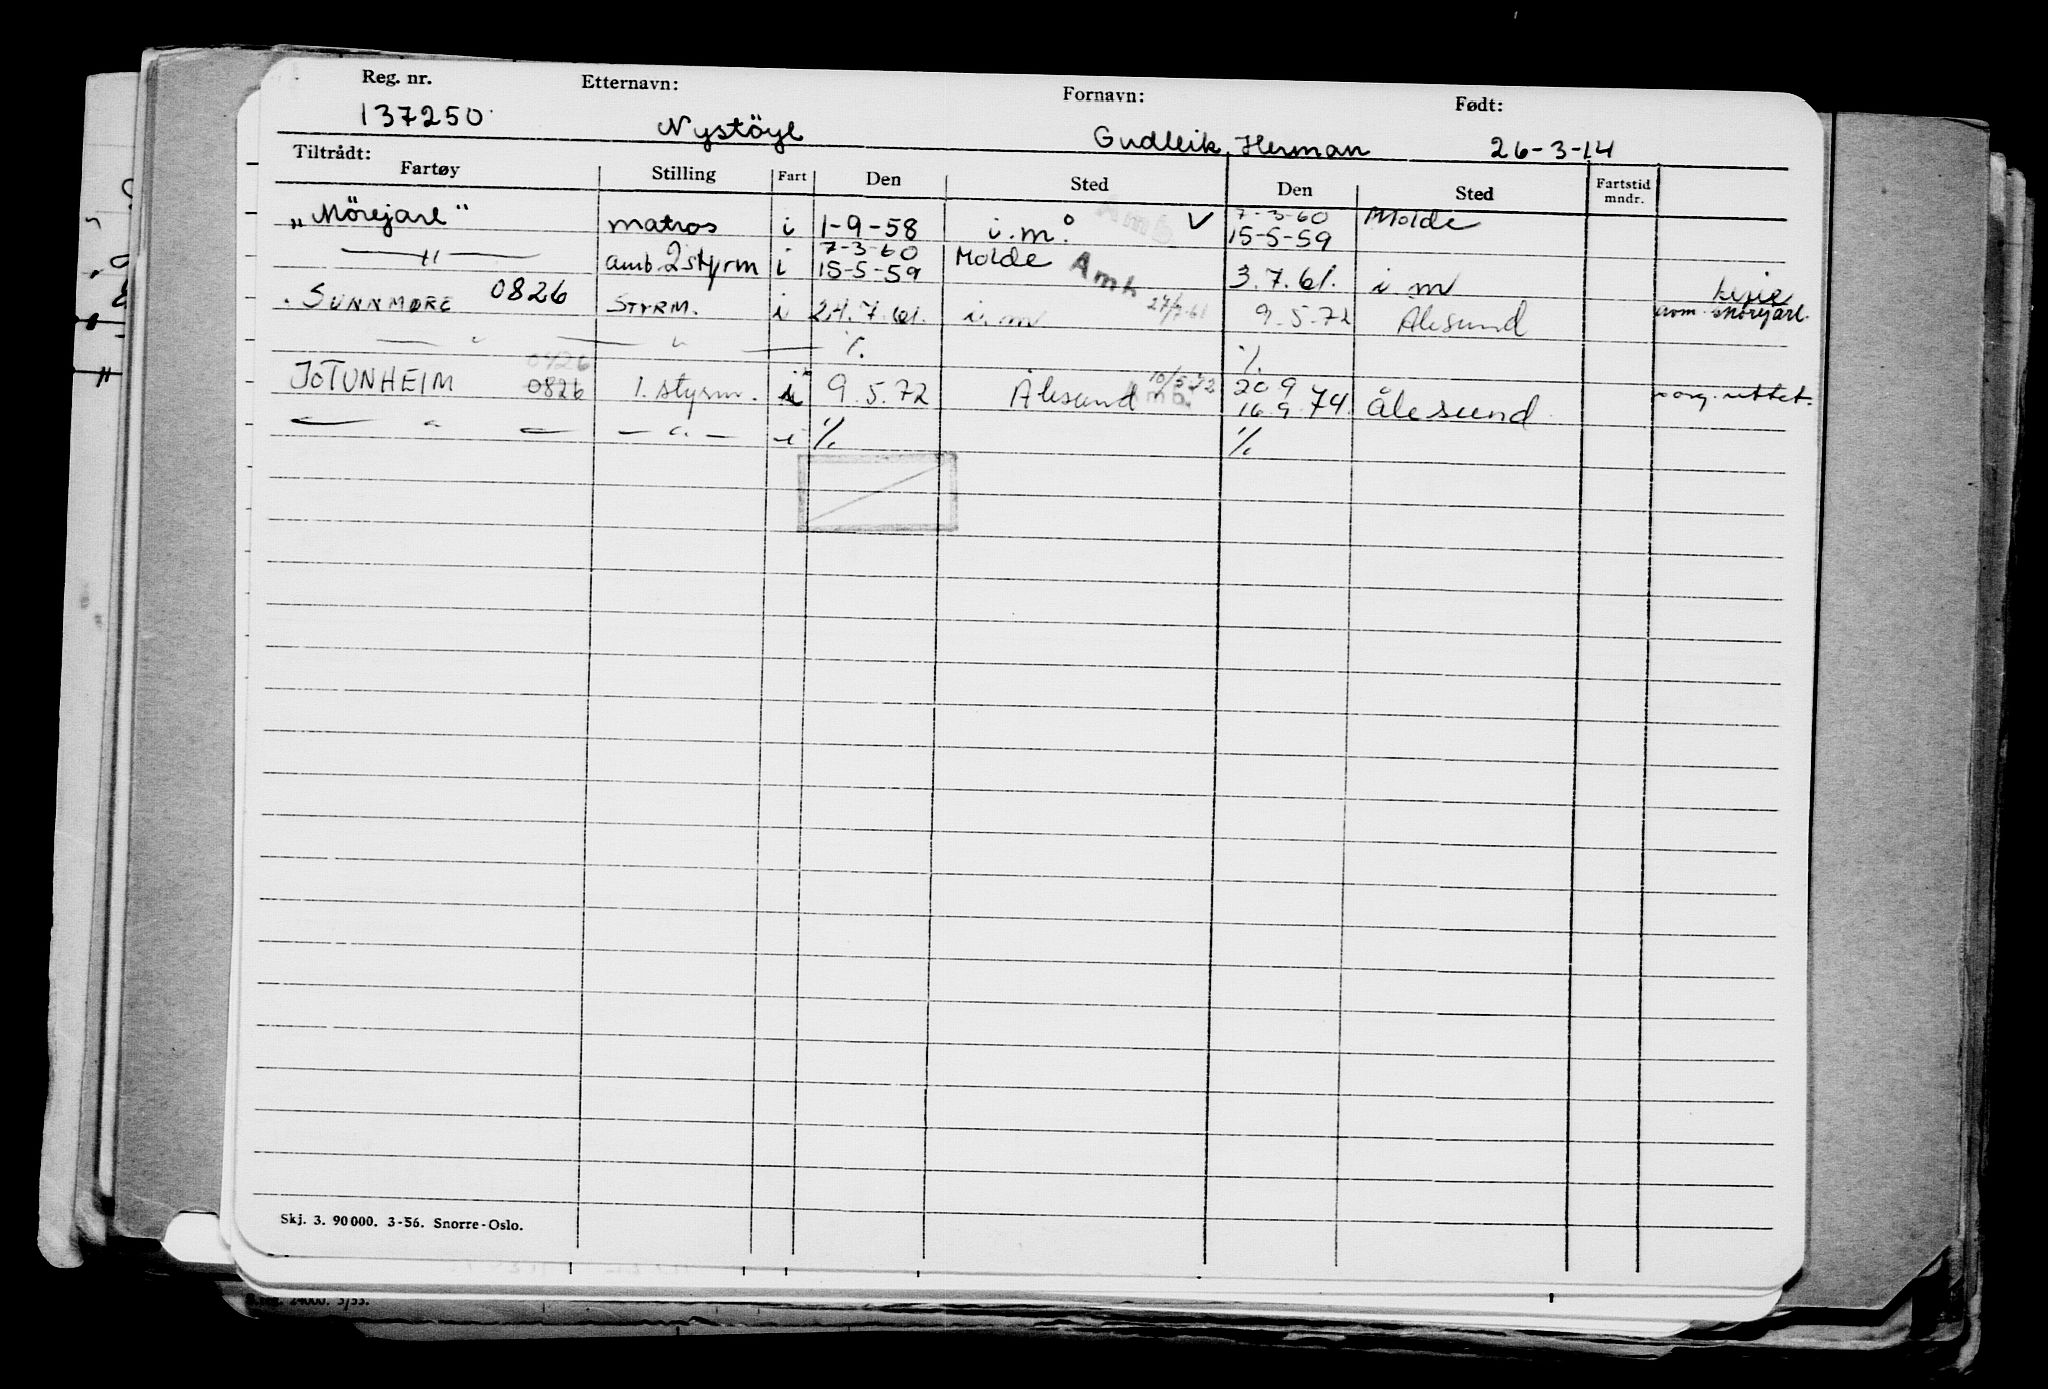 Reg. nr. Etternavn: Fornavn: Født:
137250 Nystöyl Gudleik Herman 26-3-14
Tiltrådt:
Fartøy Stilling Fart Den Sted Den Sted Fartstid mndr.
7-3-60
„Mörejarl" matros i 1-9-58 i.m. Amb V 15-5-59 Molde
7-3-60
—"— amb. 2styrm i 15-5-59 Molde Amb 3.7.61. i.m
SUNNMØRE 0826 STYRM. i 24.7.61. i.m 9.5.72 Ålesund
— " — " — %. %.
0426
JOTUNHEIM 0826 1. styrm. i 9.5.72 Ålesund 10/5-72 Amb. 20 9
16 9 74. Ålesund
— " — — " — i %. %.
Skj. 3. 90000. 3-56. Snorre-Oslo.
24000. 3/53.